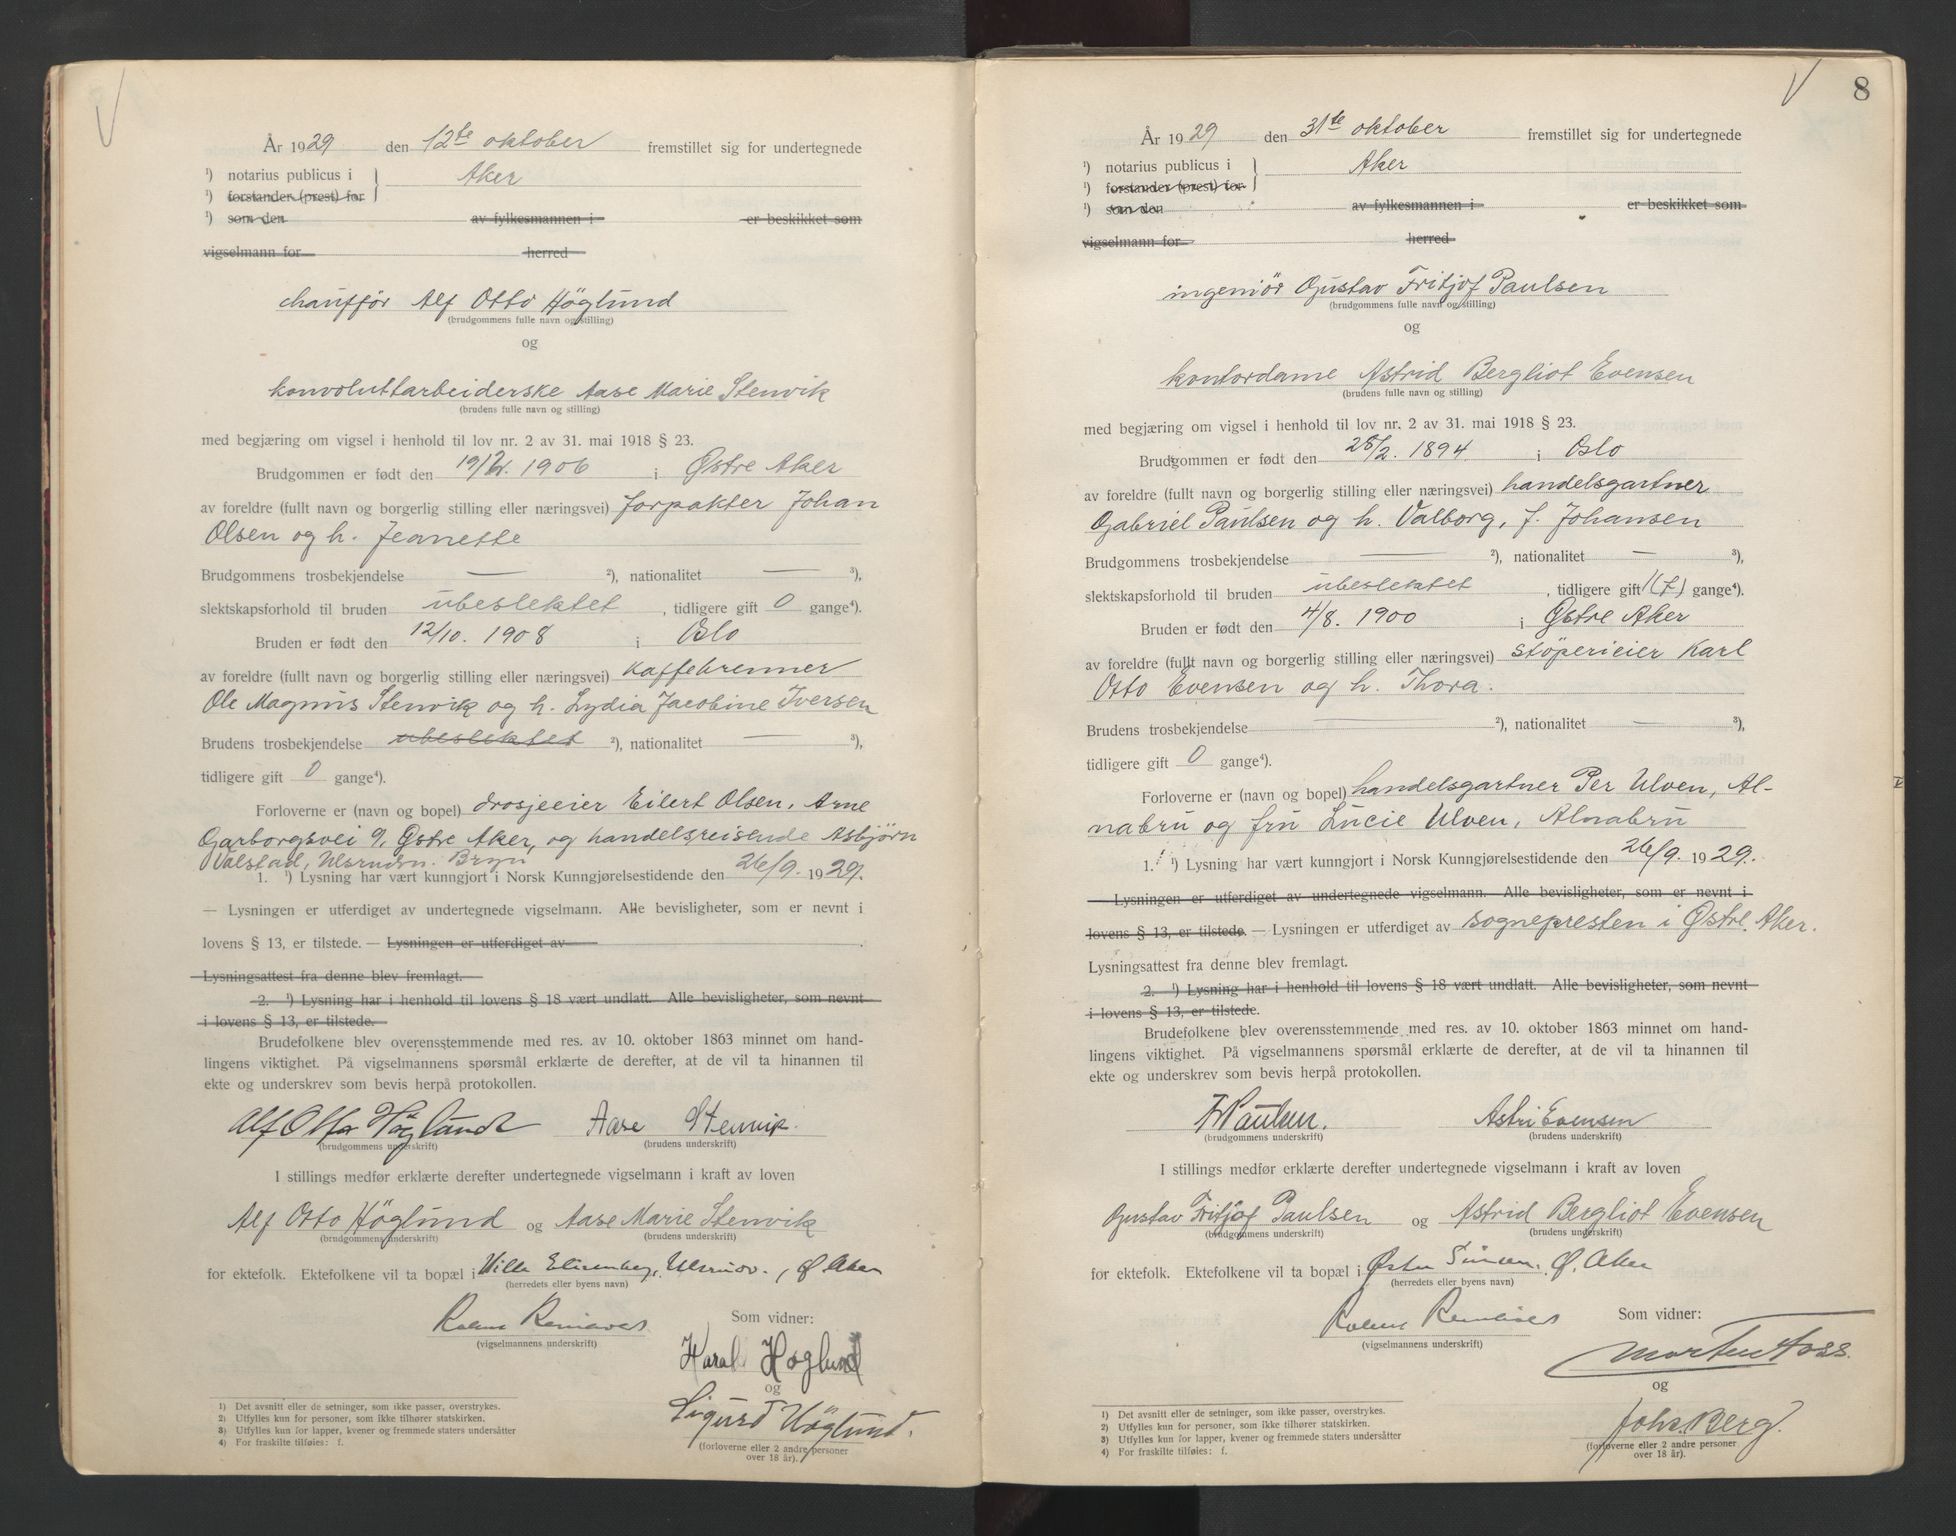 År 1929 den 12te oktober fremstillet sig for undertegnede
¹) notarius publicus i Aker
¹) forstander (prest) for
¹) som den av fylkesmannen i er beskikket som
vigselmann for herred
chaufför Alf Otto Höglund
(brudgommens fulle navn og stilling)
og
konvoluttarbeiderske Aase Marie Stenvik
(brudens fulle navn og stilling)
med begjæring om vigsel i henhold til lov nr. 2 av 31. mai 1918 § 23.
Brudgommen er født den 1906 i Østre Aker
av foreldre (fullt navn og borgerlig stilling eller næringsvei) forpakter Johan
Olsen og h. Jeanette
Brudgommens trosbekjendelse — ²), nationalitet — ³),
slektskapsforhold til bruden ubeslektet, tidligere gift 0 gange⁴).
Bruden er født den 12/10. 1908 i Oslo
av foreldre (fullt navn og borgerlig stilling eller næringsvei) kaffebrenner
Ole Magnus Stenvik og h. Lydia Jacobine Iversen
Brudens trosbekjendelse ubeslektet ²), nationalitet — ³),
tidligere gift 0 gange⁴).
Forloverne er (navn og bopel) drosjeeier Eilert Olsen, Arne
Garborgsvei 9, Østre Aker, og handelsreisende Asbjørn
Valstad, Ulsrudvn. Bryn
1. ¹) Lysning har vært kunngjort i Norsk Kunngjørelsestidende den 26/9. 1929.
— Lysningen er utferdiget av undertegnede vigselmann. Alle bevisligheter, som er nevnt i
lovens § 13, er tilstede. — Lysningen er utferdiget av
Lysningsattest fra denne blev fremlagt.
2. ¹) Lysning har i henhold til lovens § 18 vært undlatt. Alle bevisligheter, som nevnt
i lovens § 13, er tilstede.
Brudefolkene blev overensstemmende med res. av 10. oktober 1863 minnet om hand-
lingens viktighet. På vigselmannens spørsmål erklærte de derefter, at de vil ta hinannen til
ekte og underskrev som bevis herpå protokollen.
Alf Otto Höglund Aase Stenvik.
(brudgommens underskrift) (brudens underskrift)
I stillings medfør erklærte derefter undertegnede vigselmann i kraft av loven
Alf Otto Höglund og Aase Marie Stenvik
(brudgommens underskrift) (brudens underskrift)
for ektefolk. Ektefolkene vil ta bopæl i Ø. Aker
(herredets eller byens navn)
Som vidner:
(vigselmannens underskrift)
Harald Høglund
og
Sigurd Höglund.
(forloverne eller 2 andre personer
over 18 år).
1) Det avsnitt eller de setninger, som ikke passer, overstrykes.
2) Utfylles kun for personer, som ikke tilhører statskirken.
3) Utfylles kun for lapper, kvener og fremmede staters undersåtter
4) For fraskilte tilføies: f.
8
År 1929 den 31te oktober fremstillet sig for undertegnede
¹) notarius publicus i Aker
¹) forstander (prest) for
¹) som den av fylkesmannen i er beskikket som
vigselmann for herred
ingeniör Gustav Fritjof Paulsen
(brudgommens fulle navn og stilling)
og
kontordame Astrid Bergliot Evensen
(brudens fulle navn og stilling)
med begjæring om vigsel i henhold til lov nr. 2 av 31. mai 1918 § 23.
Brudgommen er født den 28/2. 1894 i Oslo
av foreldre (fullt navn og borgerlig stilling eller næringsvei) handelsgartner
Gabriel Paulsen og h. Valborg, f. Johansen
Brudgommens trosbekjendelse — ²), nationalitet — ³),
slektskapsforhold til bruden ubeslektet, tidligere gift 1(f) gange⁴).
Bruden er født den 4/8. 1900 i Østre Aker
av foreldre (fullt navn og borgerlig stilling eller næringsvei) støperieier Karl
Otto Evensen og h. Thora.
Brudens trosbekjendelse — ²), nationalitet — ³),
tidligere gift 0 gange⁴).
Forloverne er (navn og bopel) handelsgartner Per Ulven, Al-
nabru og fru Lucie Ulven, Alnabru
1. ¹) Lysning har vært kunngjort i Norsk Kunngjørelsestidende den 26/9. 1929.
— Lysningen er utferdiget av undertegnede vigselmann. Alle bevisligheter, som er nevnt i
lovens § 13, er tilstede. — Lysningen er utferdiget av sognepresten i Østre Aker.
Lysningsattest fra denne blev fremlagt.
2. ¹) Lysning har i henhold til lovens § 18 vært undlatt. Alle bevisligheter, som nevnt
i lovens § 13, er tilstede.
Brudefolkene blev overensstemmende med res. av 10. oktober 1863 minnet om hand-
lingens viktighet. På vigselmannens spørsmål erklærte de derefter, at de vil ta hinannen til
ekte og underskrev som bevis herpå protokollen.
Paulsen. Astri Evensen
(brudgommens underskrift) (brudens underskrift)
I stillings medfør erklærte derefter undertegnede vigselmann i kraft av loven
Gustav Fritjof Paulsen og Astrid Bergliot Evensen
(brudgommens underskrift) (brudens underskrift)
for ektefolk. Ektefolkene vil ta bopæl i Ø. Aker
(herredets eller byens navn)
Som vidner:
(vigselmannens underskrift)
Morten Foss.
og
Johs. Berg.
(forloverne eller 2 andre personer
over 18 år).
1) Det avsnitt eller de setninger, som ikke passer, overstrykes.
2) Utfylles kun for personer, som ikke tilhører statskirken.
3) Utfylles kun for lapper, kvener og fremmede staters undersåtter
4) For fraskilte tilføies: f.